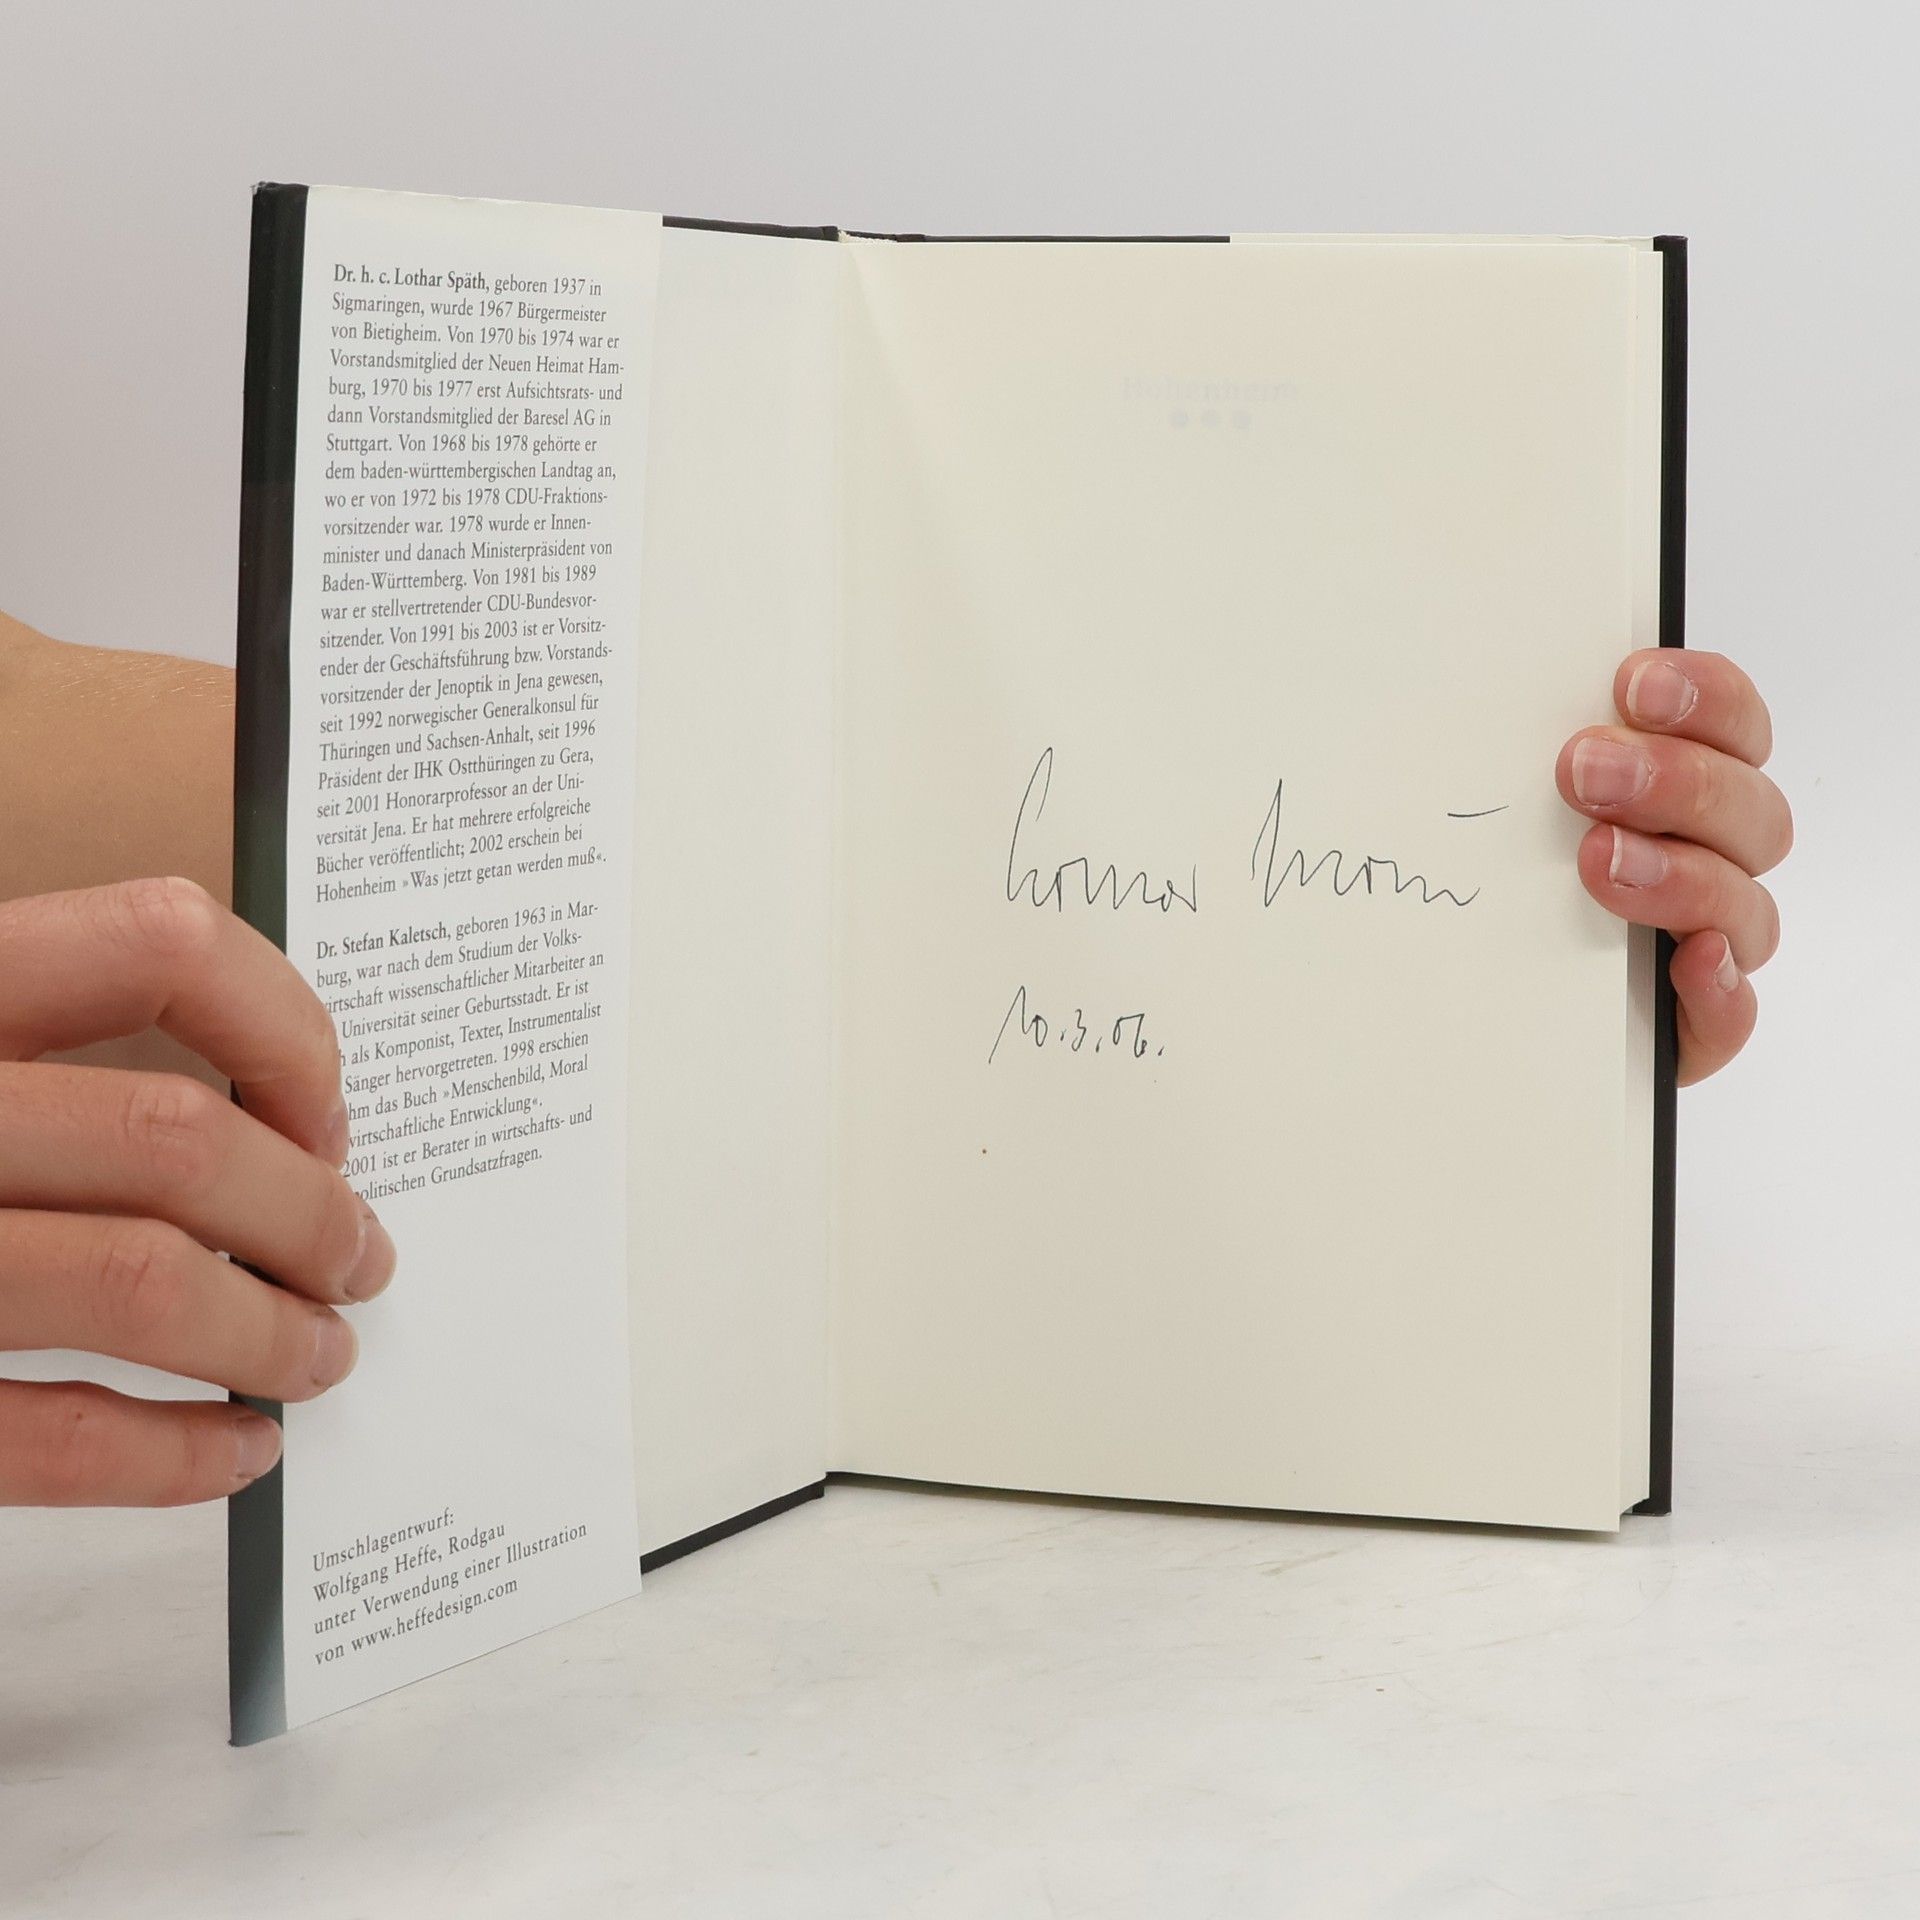 Dr. h. c. Lothar Späth, geboren 1937 in
Sigmaringen, wurde 1967 Bürgermeister
von Bietigheim. Von 1970 bis 1974 war er
Vorstandsmitglied der Neuen Heimat Ham-
burg, 1970 bis 1977 erst Aufsichtsrats- und
dann Vorstandsmitglied der Baresel AG in
Stuttgart. Von 1968 bis 1978 gehörte er
dem baden-württembergischen Landtag an,
wo er von 1972 bis 1978 CDU-Fraktions-
vorsitzender war. 1978 wurde er Innen-
minister und danach Ministerpräsident von
Baden-Württemberg. Von 1981 bis 1989
war er stellvertretender CDU-Bundesvor-
sitzender. Von 1991 bis 2003 ist er Vorsitz-
ender der Geschäftsführung bzw. Vorstands-
vorsitzender der Jenoptik in Jena gewesen,
seit 1992 norwegischer Generalkonsul für
Thüringen und Sachsen-Anhalt, seit 1996
Präsident der IHK Ostthüringen zu Gera,
seit 2001 Honorarprofessor an der Uni-
versität Jena. Er hat mehrere erfolgreiche
Bücher veröffentlicht; 2002 erschein bei
Hohenheim »Was jetzt getan werden muß«.
Dr. Stefan Kaletsch, geboren 1963 in Mar-
burg, war nach dem Studium der Volks-
irtschaft wissenschaftlicher Mitarbeiter an
Universität seiner Geburtsstadt. Er ist
h als Komponist, Texter, Instrumentalist
Sänger hervorgetreten. 1998 erschien
hm das Buch »Menschenbild, Moral
wirtschaftliche Entwicklung«.
2001 ist er Berater in wirtschafts- und
olitischen Grundsatzfragen.
Umschlagentwurf:
Wolfgang Heffe, Rodgau
unter Verwendung einer Illustration
von www.heffedesign.com
10.3.06.